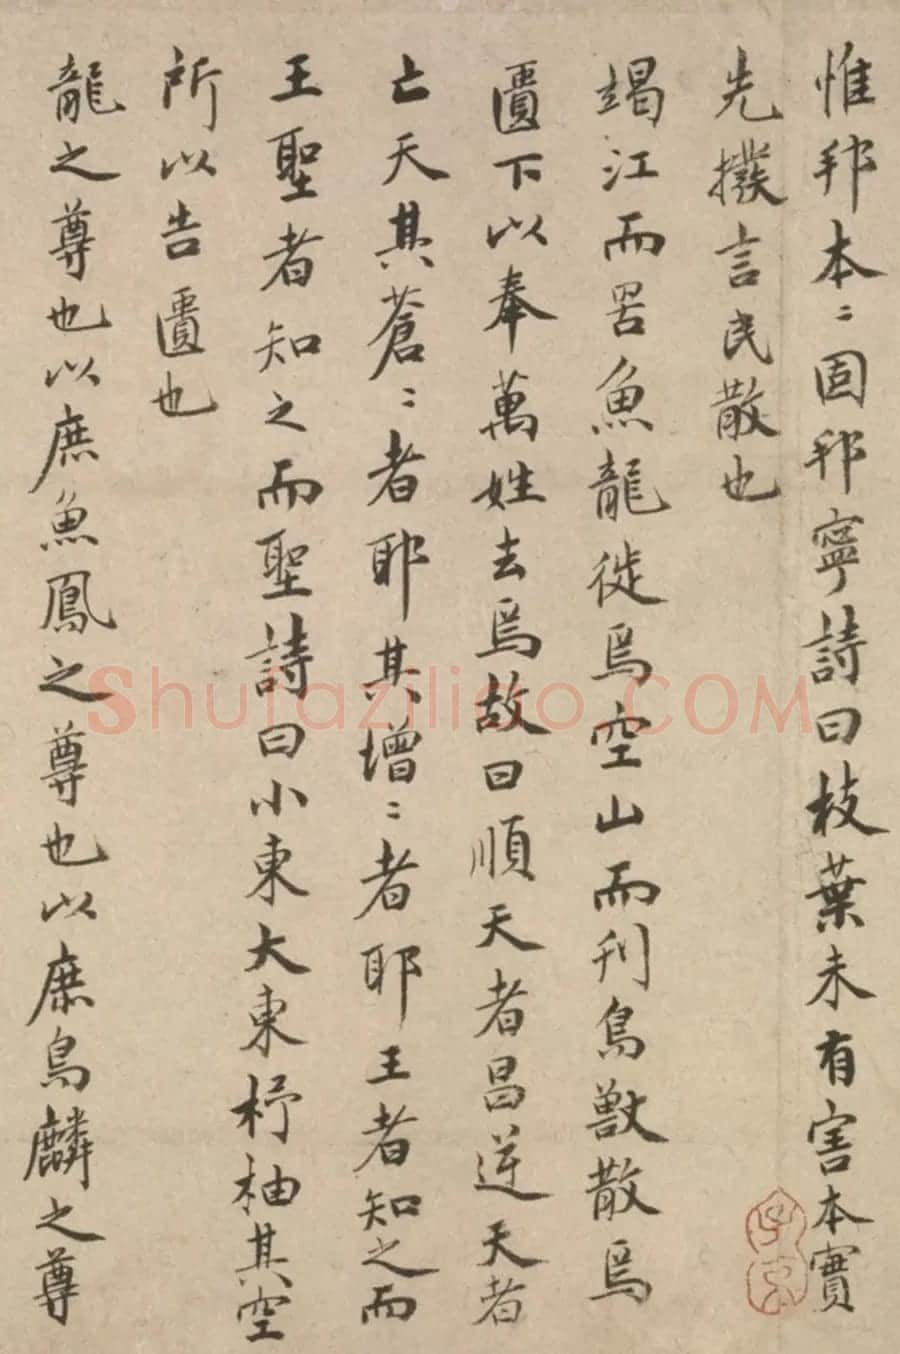 惟邦本〻固邦寧詩曰枝葉未有害本實
先撥言民散也
竭江而罟魚龍徙焉空山而刊鳥獸散焉
匱下以奉萬姓去焉故曰順天者昌逆天者
亡天其蒼〻者耶其增〻者耶王者知之而
王聖者知之而聖詩曰小東大東杼柚其空
所以告匱也
龍之尊也以庶魚鳳之尊也以庶鳥麟之尊
Shufaziliao.COM
子京